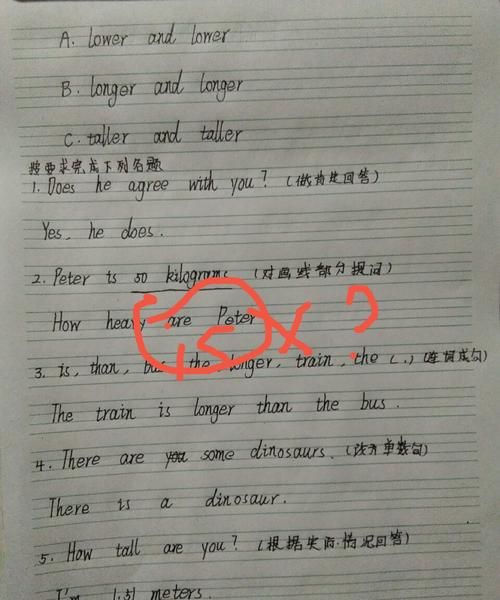 A. lower and lower
B. longer and longer
C. taller and taller
按要求完成下列各题
1. Does he agree with you? (做肯定回答)
Yes, he does.
2. Peter is 50 kilograms. (对画线部分提问)
How heavy are Peter
is X ?
3. is, than, bus, the, longer, train, the (.) (连词成句)
The train is longer than the bus.
4. There are some dinosaurs. (改为单数句)
There is a dinosaur.
5. How tall are you? (根据实际情况回答)
I'm 1.51 meters.